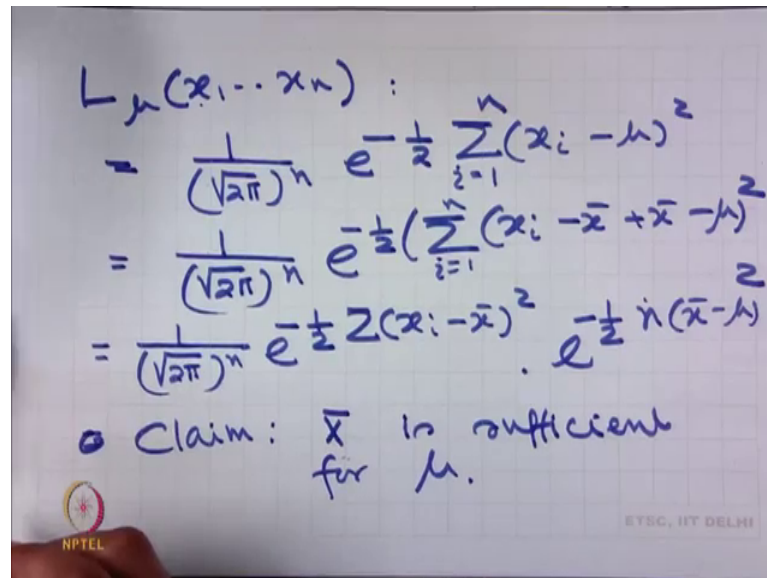 L_μ(x₁ ·· xₙ) :
= 1/(√2π)ⁿ e^{-1/2 Σ_{i=1}^{n} (xᵢ - μ)²}
= 1/(√2π)ⁿ e^{-1/2 (Σ_{i=1}^{n} (xᵢ - x̄ + x̄ - μ)²}
= 1/(√2π)ⁿ e^{-1/2 Σ(xᵢ - x̄)²} . e^{-1/2 n(x̄ - μ)²}
• Claim: X̄ is sufficient
for μ.
ETSC, IIT DELHI
NPTEL